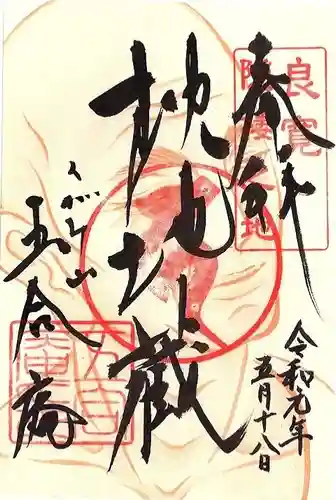 奉拝
良寛
隠棲之地
枕地蔵
くがみ山
五合庵
令和元年
五月十八日